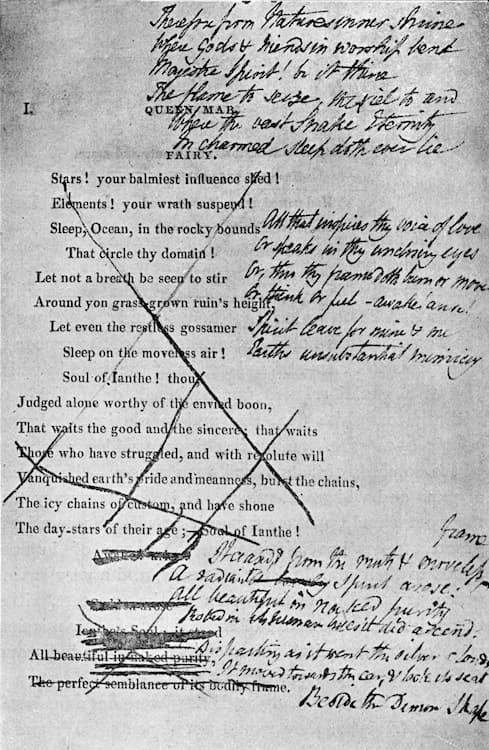 Therefore from Natures inner shrine
Where Gods & fiends in worship bend
Majestic Spirit! be it thine
The flame to seize, the viel to rend
I. QUEEN MAB.
Where the vast Snake Eternity
In charmed sleep doth ever lie
FAIRY.
Stars! your balmiest influence shed!
Elements! your wrath suspend!
Sleep, Ocean, in the rocky bounds
That circle thy domain!
Let not a breath be seen to stir
Around yon grass-grown ruin's height,
Let even the restless gossamer
Sleep on the moveless air!
Soul of Ianthe! thou,
Judged alone worthy of the envied boon,
That waits the good and the sincere; that waits
Those who have struggled, and with resolute will
Vanquished earth's pride and meanness, burst the chains,
The icy chains of custom, and have shone
The day-stars of their age;—Soul of Ianthe!
All that inspires thy voice of love
Or speaks in thy unclosing eyes
Or thro thy frame doth burn or move
Or think or feel - awake! arise!
Spirit leave for mine & me
Earths unsubstantial mimicry
Awake! arise!
Sudden arose
Ianthe's Soul; it stood
All beautiful in naked purity,
The perfect semblance of its bodily frame.
It ceased & from the mute & moveless frame
A radiant spirit arose:
All beautiful in naked purity
Robed in its human hues it did ascend.
Disparting as it went the silver clouds
It moved towards the car, & took its seat
Beside the Demon Shape